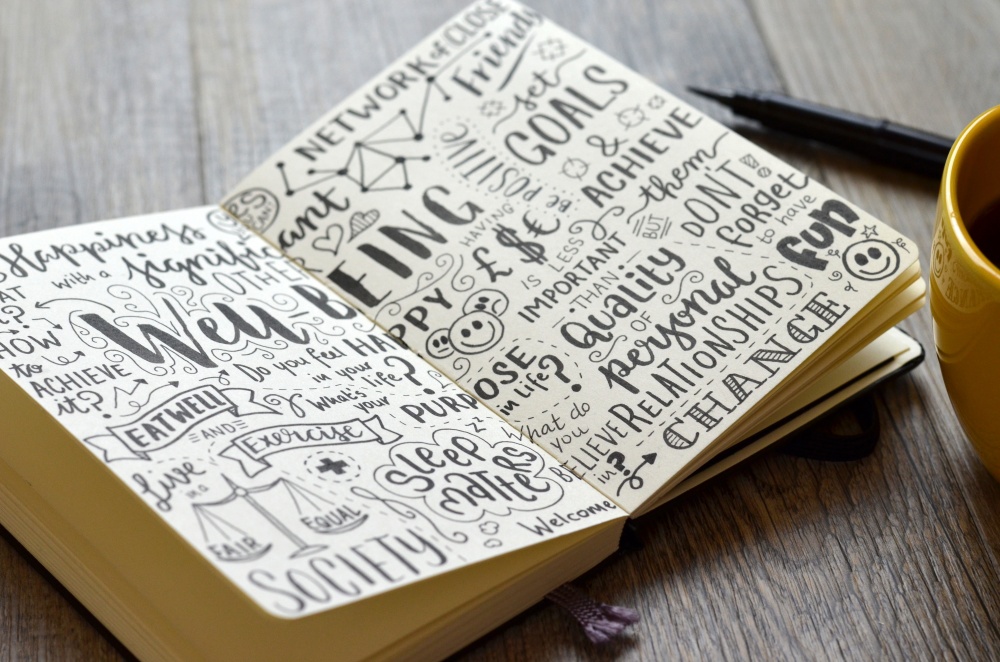 Happiness
with a significant
OTHER
HOW
to
ACHIEVE
it?
Well-BEING
Do you feel HAPPY
in your
life?
EAT WELL
AND
Exercise
What's
your PURPOSE
in life?
live
in a
FAIR
EQUAL
SOCIETY
Sleep
matters
Welcome
CHANGE
NETWORK of CLOSE
Friends
set
GOALS
&
ACHIEVE
them
BE
POSITIVE
HAVING
£ $ €
IS LESS
IMPORTANT
THAN
Quality
OF
personal
RELATIONSHIPS
BUT
DON'T
forget
to have
fun
What do
you
BELIEVE
in?